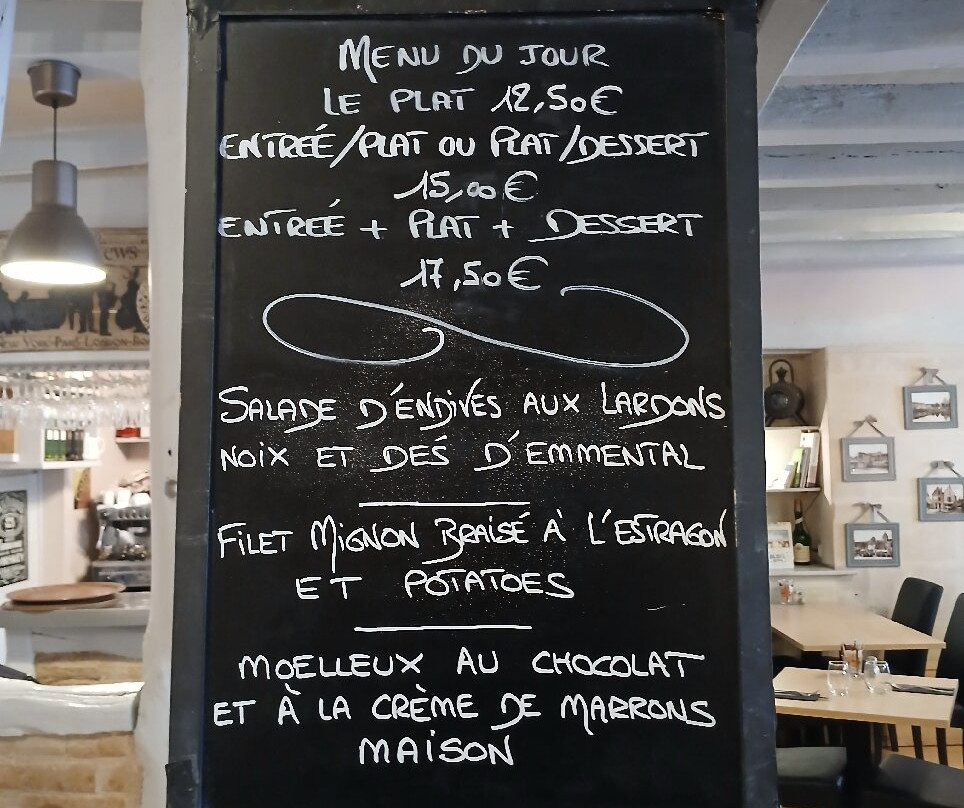 MENU DU JOUR
LE PLAT 12,50€
ENTREÉ/PLAT OU PLAT/DESSERT
15,00€
ENTREÉ + PLAT + DESSERT
17,50€
SALADE D'ENDIVES AUX LARDONS
NOIX ET DÉS D'EMMENTAL
FILET MIGNON BRAISÉ À L'ESTRAGON
ET POTATOES
MOELLEUX AU CHOCOLAT
ET À LA CRÈME DE MARRONS
MAISON